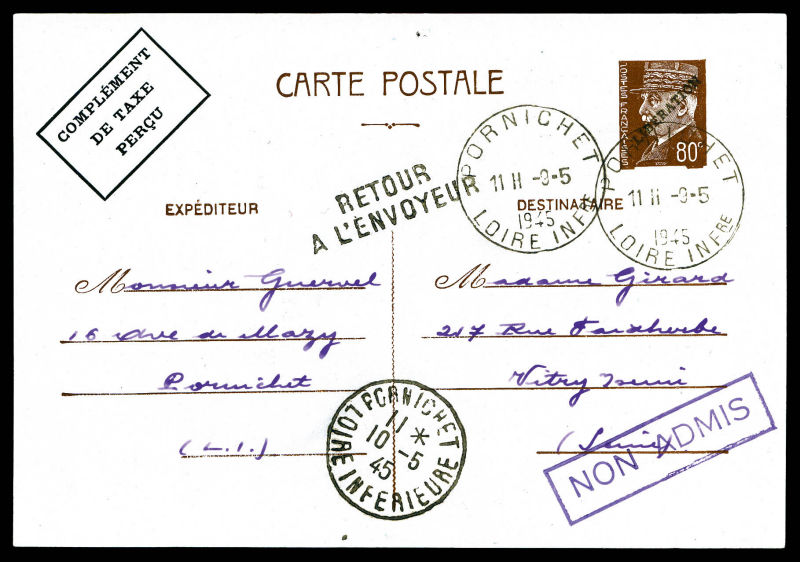 COMPLÉMENT
DE TAXE
PERÇU
CARTE POSTALE
POSTES FRANÇAISES
LIBERATION
80c
RETOUR
A L'ENVOYEUR
PORNICHET
11 H -9-5
1945
LOIRE INFRE
PORNICHET
11 H -9-5
1945
LOIRE INFRE
EXPÉDITEUR
DESTINATAIRE
Monsieur Guervel
16 Ave de Mazy
Pornichet
(L.I.)
Madame Girard
217 Rue Faidherbe
Vitry Seine
(Seine)
PORNICHET
11 *
10 -5
45
LOIRE INFERIEURE
NON ADMIS